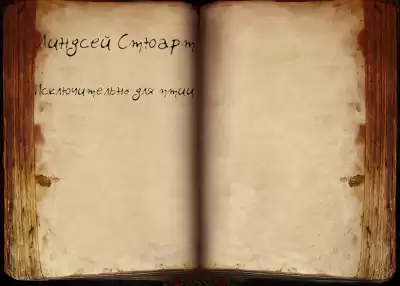 Линдсей Стюарт
Исключительно для птиц